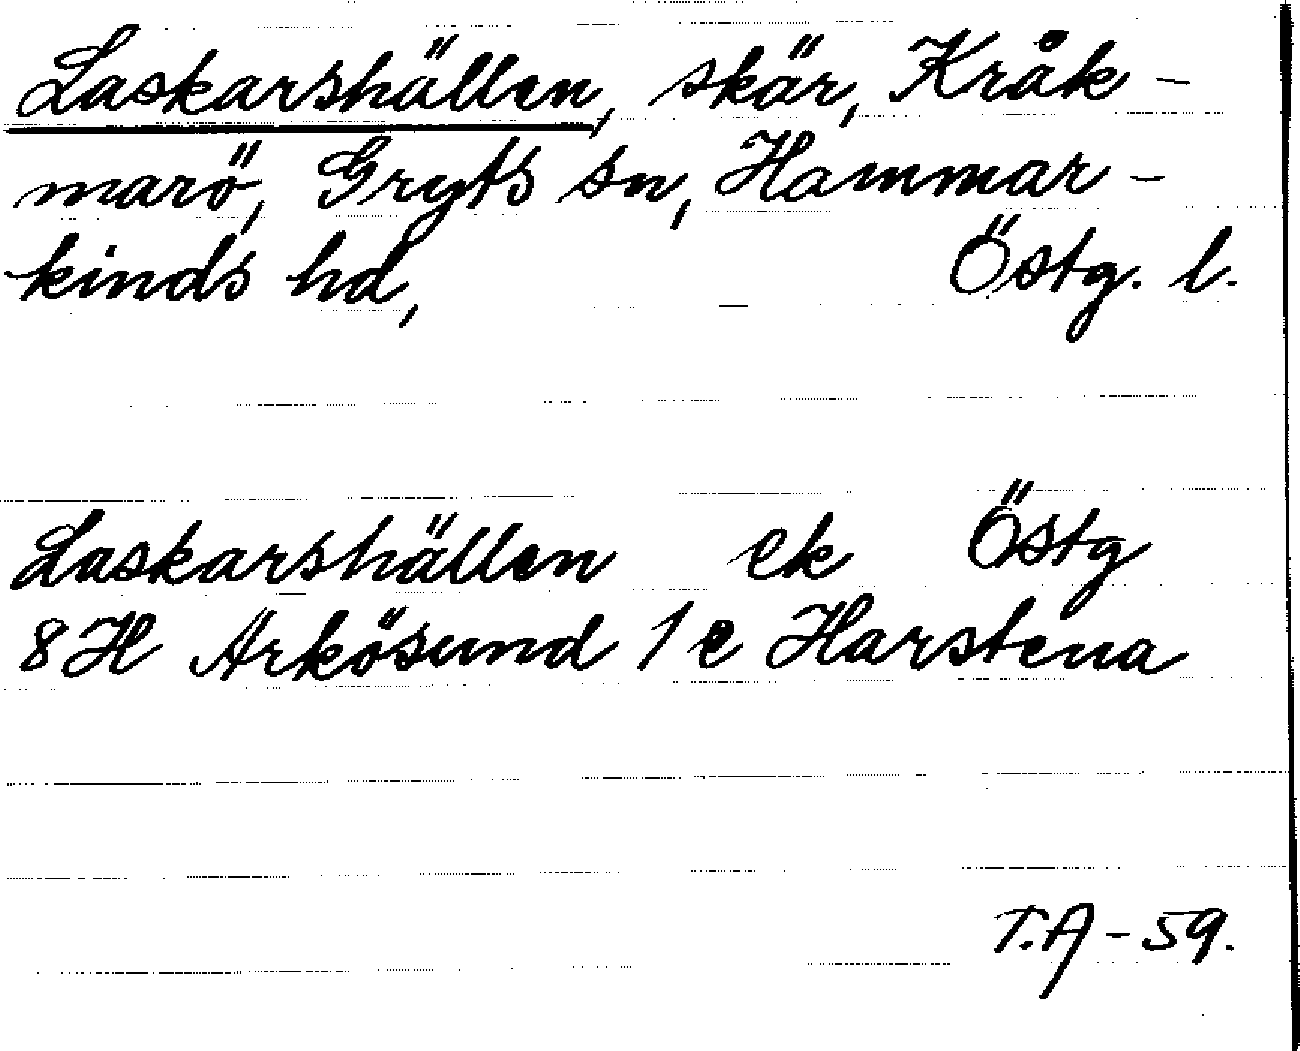 Laskarshällen, skär, Kråk-
marö, Gryts sn, Hammar-
kinds hd, Östg. l.
Laskarshällen ek Östg
8H Arkösund 1e Harstena
T.A-59.